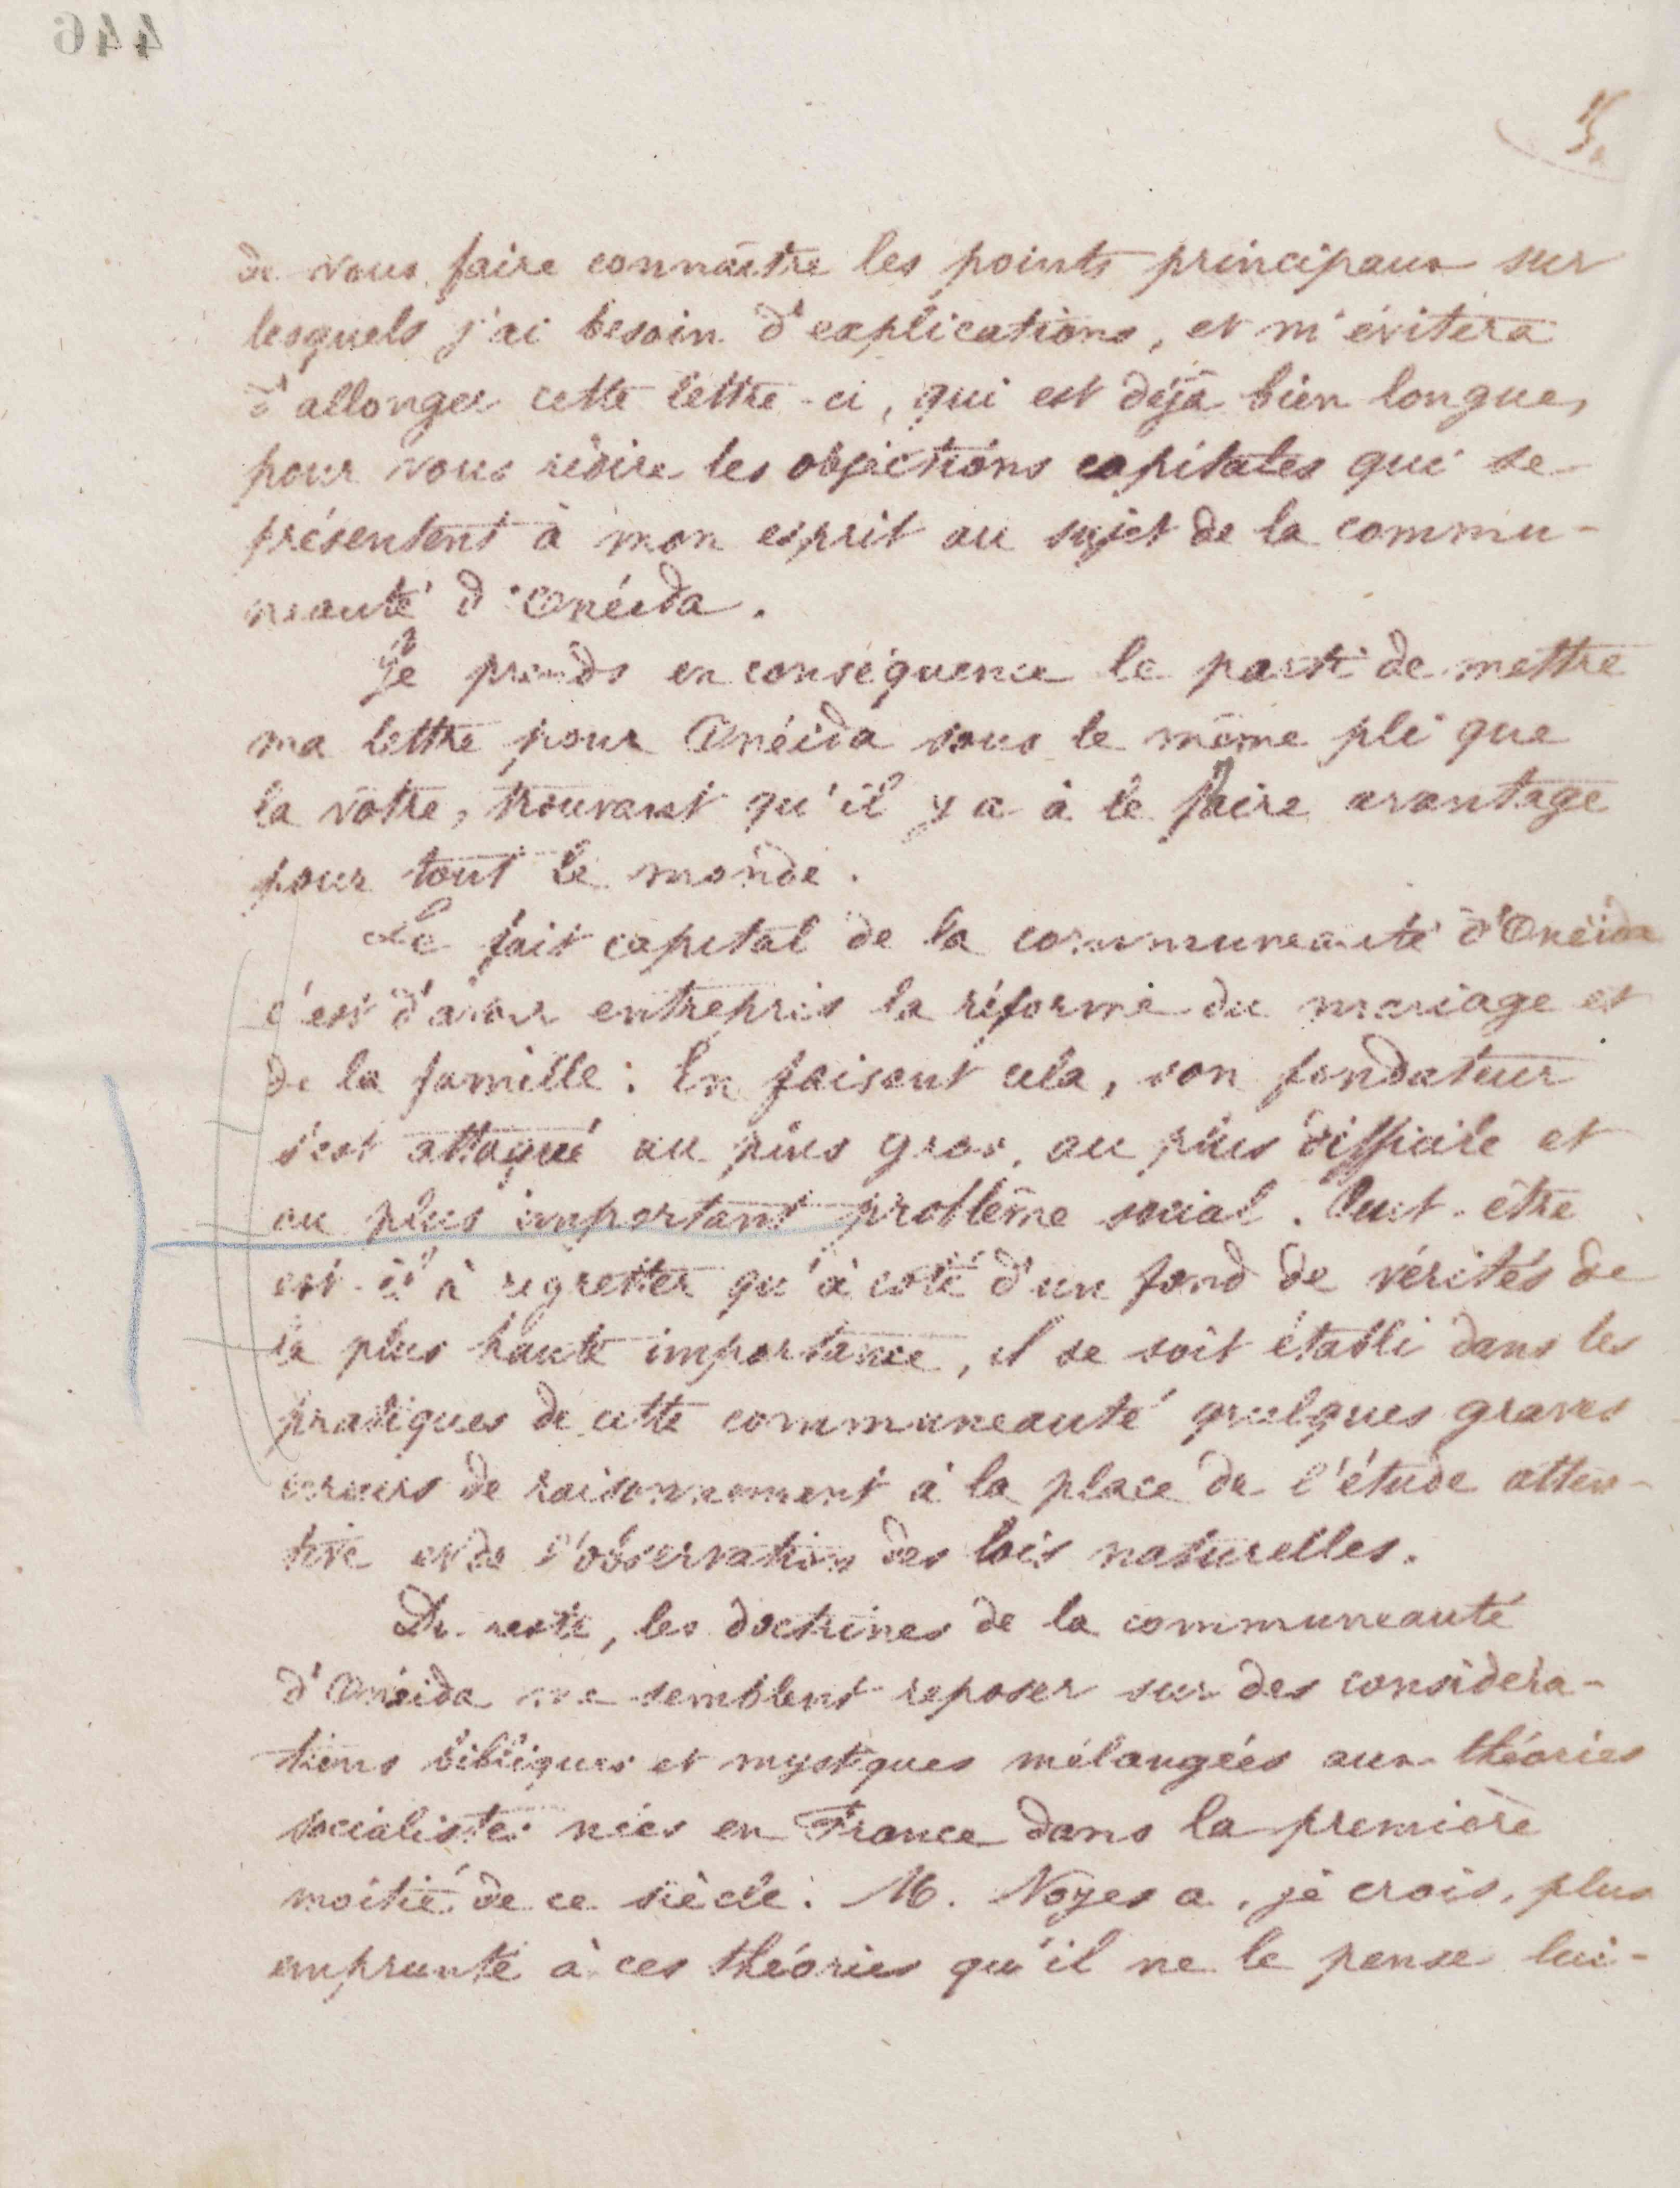 446
5
de vous faire connaître les points principaux sur
lesquels j'ai besoin d'explications, et m'évitera
d'allonger cette lettre-ci, qui est déjà bien longue,
pour vous redire les objections capitales qui se
présentent à mon esprit au sujet de la commu-
neauté d'Onéida.
Je prends en conséquence le parti de mettre
ma lettre pour Onéida sous le même pli que
la vôtre, trouvant qu'il y a à le faire avantage
pour tout le monde.
Le fait capital de la communeauté d'Onéida
c'est d'avoir entrepris la réforme du mariage et
de la famille : En faisant cela, son fondateur
s'est attaqué au plus gros, au plus difficile et
au plus important problème social. Peut-être
est-il à regretter qu'à coté d'un fond de vérités de
la plus haute importance, il se soit établi dans les
pratiques de cette communeauté quelques graves
erreurs de raisonnement à la place de l'étude atten-
tive et de l'observation des lois naturelles.
Du reste, les doctrines de la communeauté
d'Onéida me semblent reposer sur des considéra-
tions bibliques et mystiques mélangées aux théories
socialistes nées en France dans la première
moitié de ce siècle. M. Noyes a, je crois, plus
emprunté à ces théories qu'il ne le pense lui-